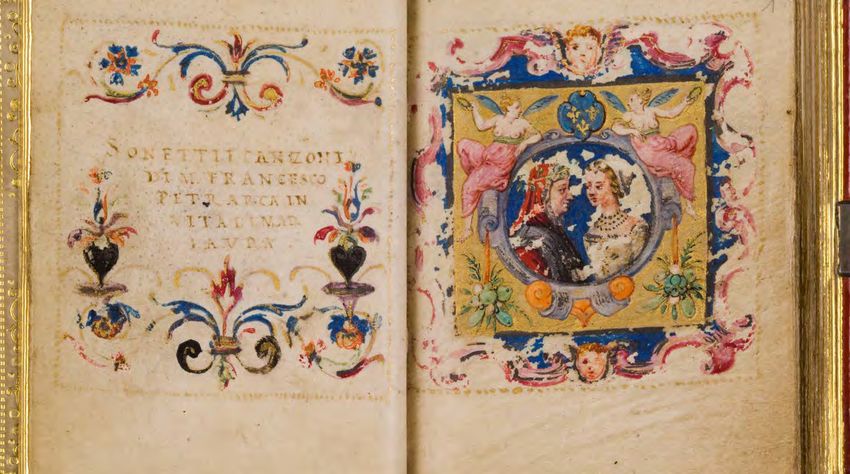 SONETTI E CANZONI
DI M. FRANCESCO
PETRARCA IN
VITA DI MAD
LAURA
1